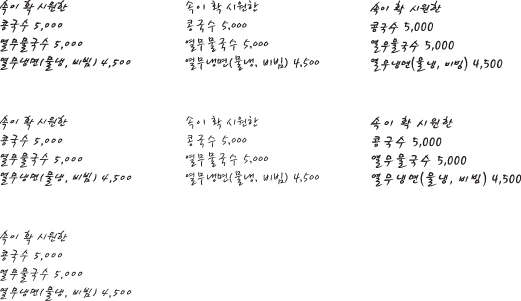 속이 확 시원한
콩국수 5,000
열무물국수 5,000
열무냉면(물냉, 비빔) 4,500
속이 확 시원한
콩국수 5,000
열무물국수 5,000
열무냉면(물냉, 비빔) 4,500
속이 확 시원한
콩국수 5,000
열무물국수 5,000
열무냉면(물냉, 비빔) 4,500
속이 확 시원한
콩국수 5,000
열무물국수 5,000
열무냉면(물냉, 비빔) 4,500
속이 확 시원한
콩국수 5,000
열무물국수 5,000
열무냉면(물냉, 비빔) 4,500
속이 확 시원한
콩국수 5,000
열무물국수 5,000
열무냉면(물냉, 비빔) 4,500
속이 확 시원한
콩국수 5,000
열무물국수 5,000
열무냉면(물냉, 비빔) 4,500